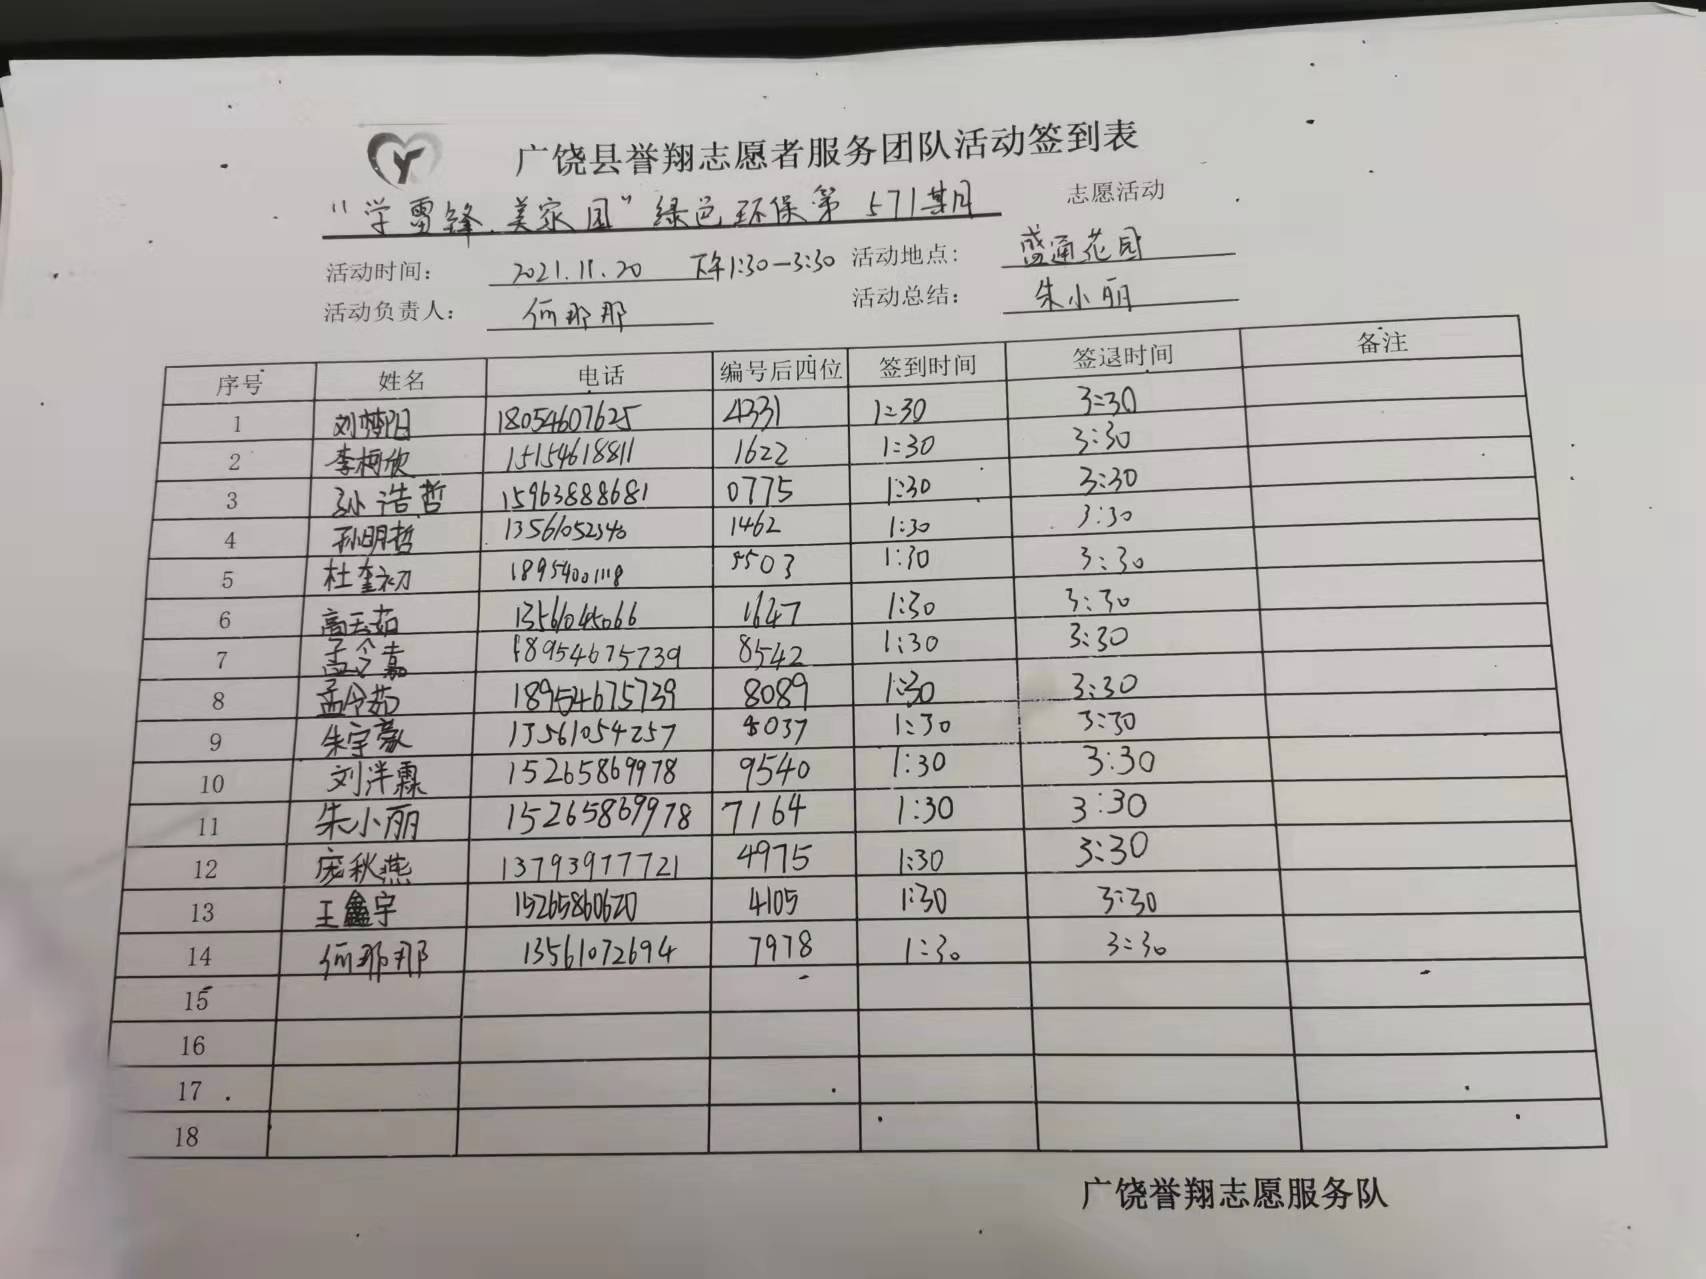 广饶县誉翔志愿者服务团队活动签到表
“学雷锋.美家园”绿色环保第571期 志愿活动
活动时间： 2021.11.20 下午1:30—3:30 活动地点： 盛通花园
活动负责人： 何那那 活动总结： 朱小丽
序号 姓名 电话 编号后四位 签到时间 签退时间 备注
1 刘梦阳 18054607625 4331 1:30 3:30
2 李柯欣 15154618811 1622 1:30 3:30
3 孙浩哲 15963888681 0775 1:30 3:30
4 孙明哲 13561052340 1462 1:30 3:30
5 杜奎初 18954001118 5503 1:30 3:30
6 高云茹 13561045066 1647 1:30 3:30
7 孟令嘉 18954675739 8542 1:30 3:30
8 孟令茹 18954675739 8089 1:30 3:30
9 朱宇豪 13561054257 8037 1:30 3:30
10 刘洋霖 15265869978 9540 1:30 3:30
11 朱小丽 15265869978 7164 1:30 3:30
12 庞秋燕 13793977721 4975 1:30 3:30
13 王鑫宇 15265860620 4105 1:30 3:30
14 何那那 13561072694 7978 1:30 3:30
15
16
17
18
广饶誉翔志愿服务队